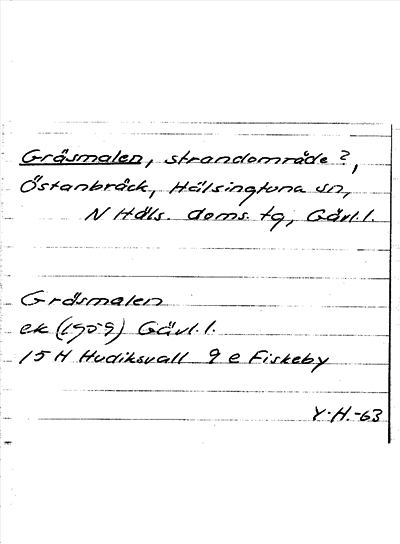 Gräsmalen, strandområde?,
Östanbräck, Hälsingtuna sn,
N Häls. doms. tg, Gävl.l.
Gräsmalen
ek (1959) Gävl.l.
15 H Hudiksvall 9 e Fiskeby
Y.H.-63